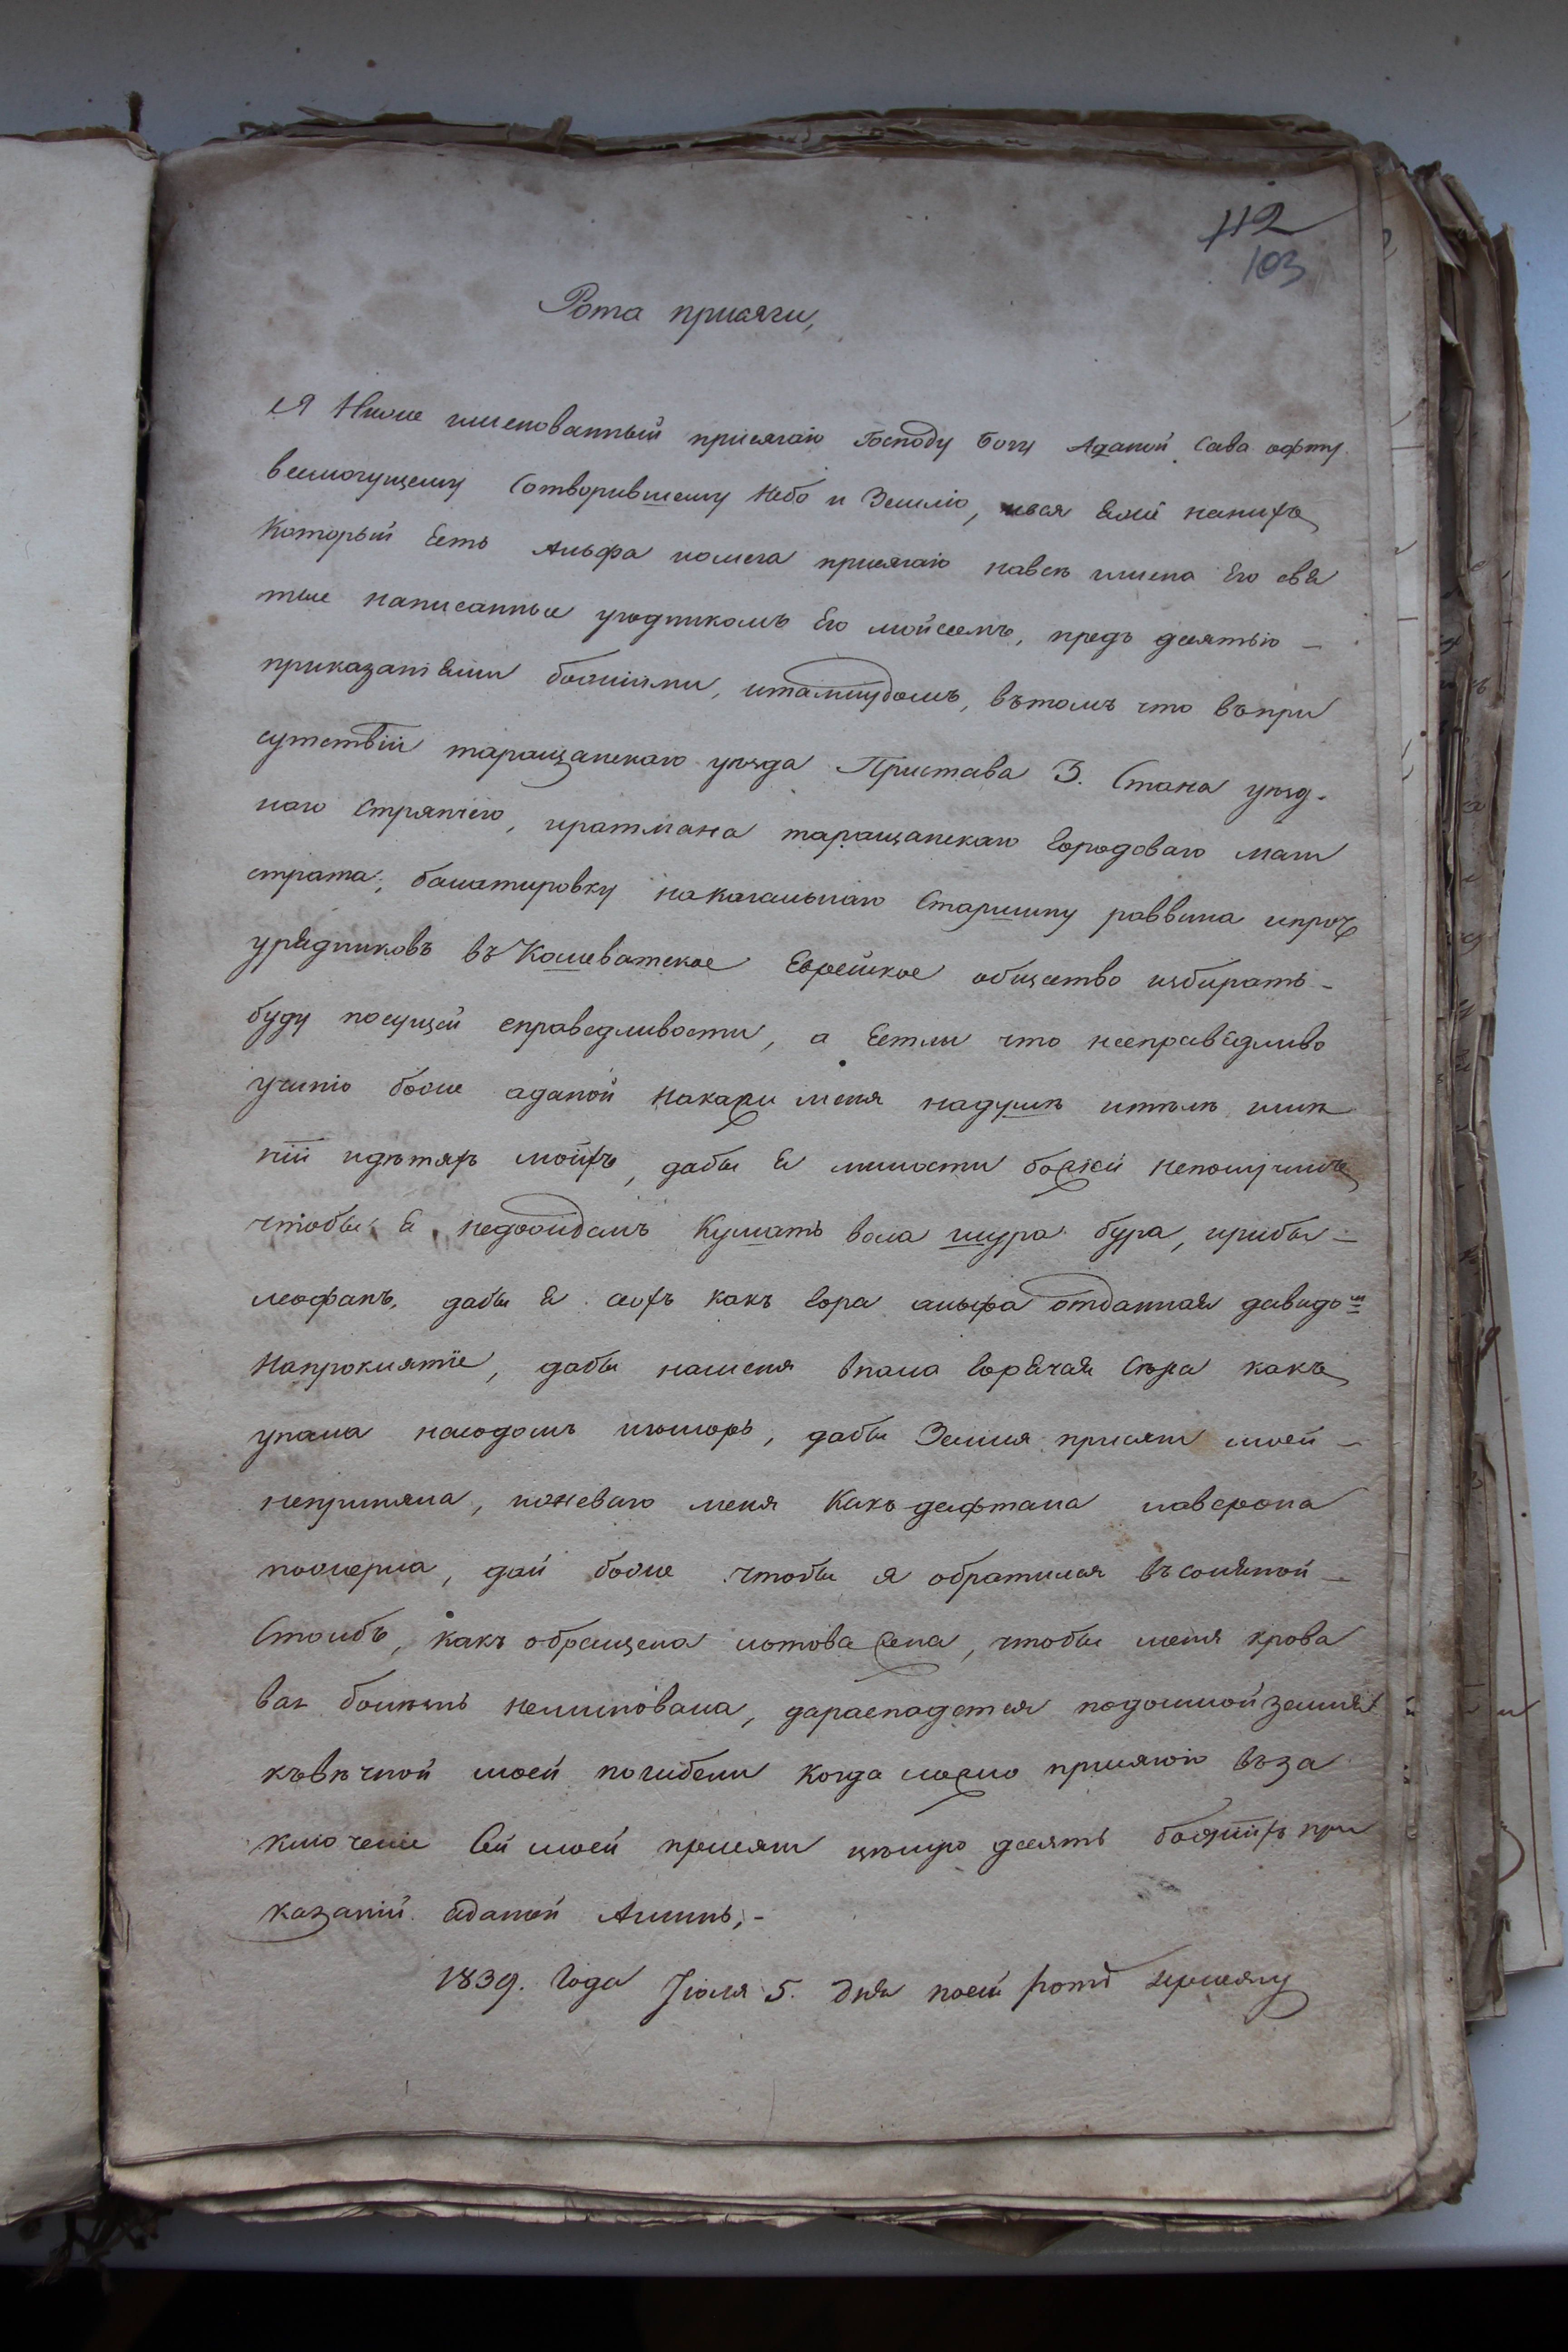 112
103
Рота присяги,
Я Ниже именованный присягаю Господу Богу Аданой Сава офту
всемогущему Сотворившему Небо и Землю, ився еже нанихъ
Который Есть Альфа иомега присягаю навсѣ имена Его свя
тые написанные угодникомъ Его мойсеемъ, предъ десятью –
приказаніями божіими, италмудомъ, вътомъ что въпри
сутствіи таращанскаго уѣзда Пристава 3. Стана уѣзд-
наго Стряпчего, иратмана таращанскаго Городоваго маги
страта, балатировку накагальнаго Старшину раввина ипроч
урядниковъ въ Кошеватское Еврейское общество избирать –
буду посущей справедливости, а Естли что несправедливо
учиню боже аданой накажи меня надушѣ итѣлѣ имѣ
ніи идѣтяхъ моихъ, дабы я милости божей неполучилъ
чтобы я недоождалъ Кушать вола шура бура, ирибы –
леофанъ, дабы я сохъ какъ Гора альфа отданная давидом
Напроклятіе, дабы наменя впала Горячая Сѣра какъ
упала насодомъ игоморъ, дабы Земля присяги моей –
неприняла, иживаго меня Какъ дафтана иаверона
пожерла, дай боже чтобы я обратился въсоляной –
Столбъ, какъ обращена лотова жена, чтобы меня крова
вая болѣзнь неминовала, дараспадется подомной земля
къвѣчной моей погибели Когда ложно присягаю въза
ключеніе Сей моей присяги цѣлую десять божіихъ при
казаній аданой Аминь, –
1839. Года Іюля 5. дня посей ротѣ присягу